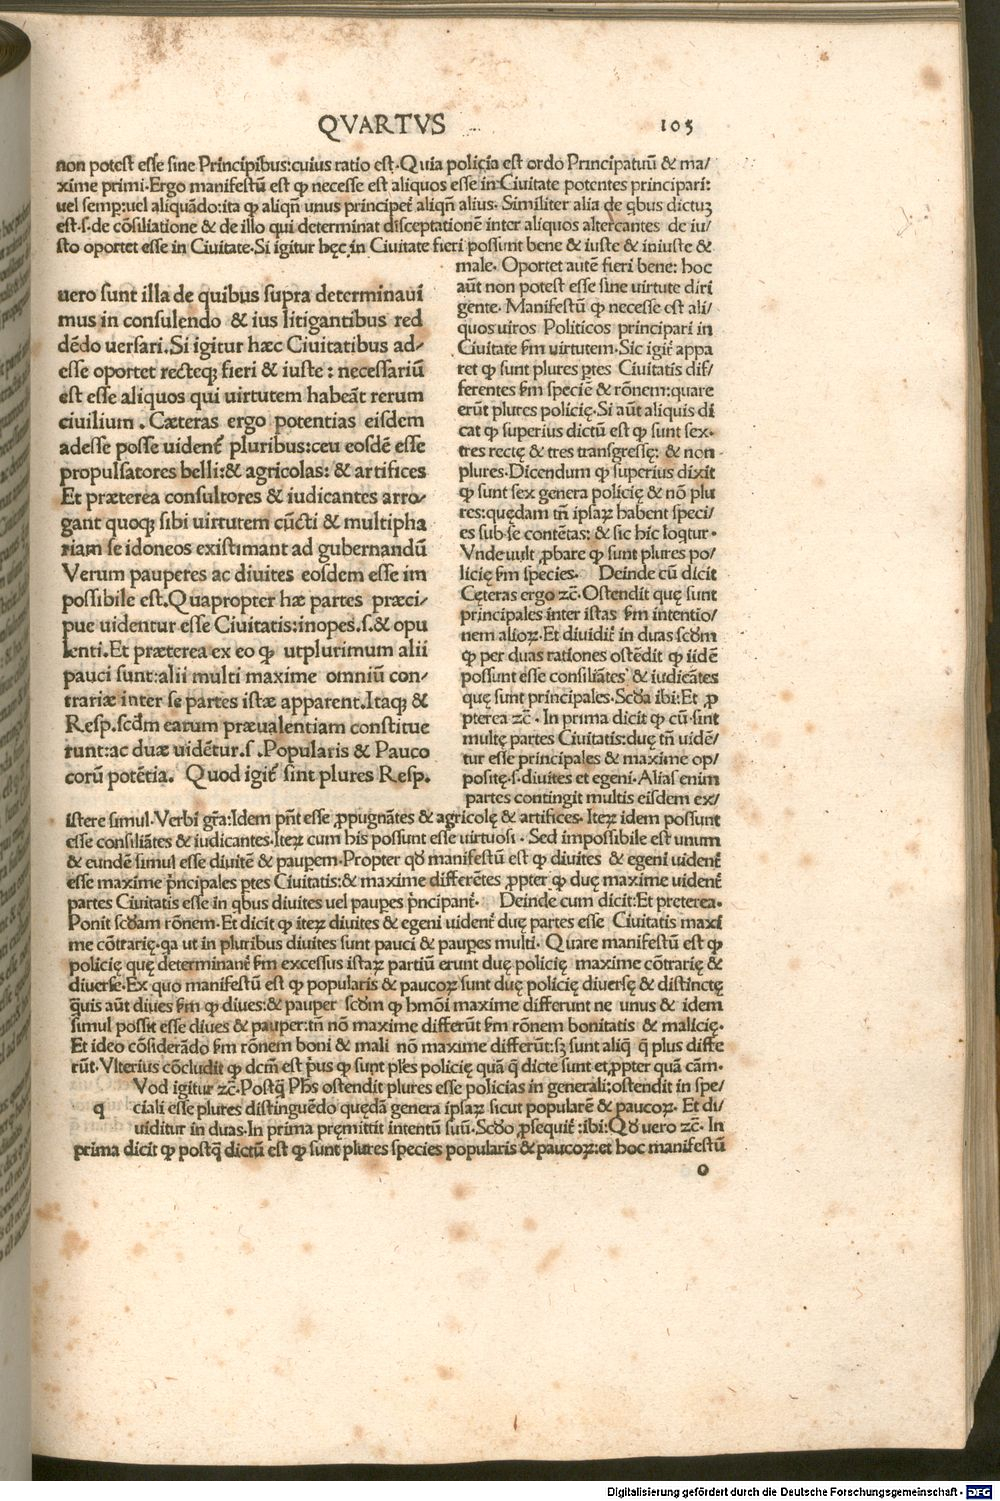 QVARTVS 105
non potest esse sine Principibus:cuius ratio est.Quia policia est ordo Principatuũ & ma/
xime primi.Ergo manifestũ est ꝙ necesse est aliquos esse in Ciuitate potentes principari:
uel semp:uel aliquãdo:ita ꝙ aliqñ unus principet̃ aliqñ alius. Similiter alia de qbus dictuꝫ
est.s.de cõsiliatione & de illo qui determinat disceptationẽ inter aliquos altercantes de iu/
sto oportet esse in Ciuitate.Si igitur hęc in Ciuitate fieri possunt bene & iuste & iniuste &
male. Oportet autẽ fieri bene: hoc
aũt non potest esse sine uirtute diri
gente. Manifestũ ꝙ necesse est ali/
quos uiros Politicos principari in
Ciuitate ẜm uirtutem.Sic igit̃ appa
ret ꝙ sunt plures ꝑtes Ciuitatis dif/
ferentes ẜm speciẽ & rõnem:quare
erũt plures policię.Si aũt aliquis di
cat ꝙ superius dictũ est ꝙ sunt sex.
tres rectę & tres transgressę: & non
plures.Dicendum ꝙ superius dixit
ꝙ sunt sex genera policię & nõ plu
res:quędam tñ ipsaꝝ habent speci/
es sub se contẽtas: & sic hic loqtur.
Vnde uult ꝓbare ꝙ sunt plures po/
licię ẜm species. Deinde cũ dicit
Cęteras ergo ⁊c̃. Ostendit quę sunt
principales inter istas ẜm intentio/
nem alioꝝ.Et diuidit̃ in duas scd̃m
ꝙ per duas rationes ostẽdit ꝙ iidẽ
possunt esse consiliãtes & iudicãtes
quę sunt principales.Scd̃a ibi:Et ꝓ
pterea ⁊c̃. In prima dicit ꝙ cũ sint
multę partes Ciuitatis:duę tñ uidẽ/
tur esse principales & maxime op/
positę.s.diuites et egeni.Alias enim
partes contingit multis eisdem ex/
uero sunt illa de quibus supra determinaui
mus in consulendo & ius litigantibus red
dẽdo uersari.Si igitur hæc Ciuitatibus ad/
esse oportet recteqꝫ fieri & iuste: necessariũ
est esse aliquos qui uirtutem habeãt rerum
ciuilium. Cæteras ergo potentias eisdem
adesse posse uident̃ pluribus:ceu eosdẽ esse
propulsatores belli:& agricolas: & artifices
Et præterea consultores & iudicantes arro/
gant quoqꝫ sibi uirtutem cũcti & multipha
riam se idoneos existimant ad gubernandũ
Verum pauperes ac diuites eosdem esse im
possibile est.Quapropter hæ partes præci/
pue uidentur esse Ciuitatis:inopes.s.& opu
lenti.Et præterea ex eo ꝙ utplurimum alii
pauci sunt:alii multi maxime omniũ con/
trariæ inter se partes istæ apparent.Itaqꝫ &
Resp.scd̃m earum præualentiam constitue
runt:ac duæ uidẽtur.s.Popularis & Pauco
corũ potẽtia. Quod igit̃ sint plures Resp.
istere simul.Verbi gr̃a:Idem pñt esse ꝓpugnãtes & agricolę & artifices. Iteꝝ idem possunt
esse consiliãtes & iudicantes.Iteꝝ cum his possunt esse uirtuosi. Sed impossibile est unum
& eundẽ simul esse diuitẽ & pauꝑem.Propter qd̃ manifestũ est ꝙ diuites & egeni uident̃
esse maxime p̃ncipales ꝑtes Ciuitatis:& maxime differẽtes ꝓpter ꝙ duę maxime uident̃
partes Ciuitatis esse in qbus diuites uel pauꝑes p̃ncipant̃. Deinde cum dicit:Et preterea.
Ponit scd̃am rõnem.Et dicit ꝙ iteꝝ diuites & egeni uident̃ duę partes esse Ciuitatis maxi
me cõtrarię.qa ut in pluribus diuites sunt pauci & pauꝑes multi. Quare manifestũ est ꝙ
policię quę determinant̃ ẜm excessus istaꝝ partiũ erunt duę policię maxime cõtrarię &
diuerse.Ex quo manifestũ est ꝙ popularis & paucoꝝ sunt duę policię diuersę & distinctę
q̃uis aũt diues ẜm ꝙ diues:& pauper scd̃m ꝙ hmõi maxime differunt ne unus & idem
simul possit esse diues & pauper:tñ nõ maxime differũt ẜm rõnem bonitatis & malicię.
Et ideo cõsiderãdo ẜm rõnem boni & mali nõ maxime differũt:sꝫ sunt aliq̃ q̃ plus diffe
rũt.Vlterius cõcludit ꝙ dcm̃ est p̃us ꝙ sunt pl̃es policię quã q̃ dicte sunt et ꝓpter quã cãm.
Vod igitur ⁊c̃.Postq̃ Ph̃s ostendit plures esse policias in generali:ostendit in spe/
q ciali esse plures distinguẽdo quędã genera ipsaꝝ sicut popularẽ & paucoꝝ. Et di/
uiditur in duas.In prima pręmittit intentũ suũ.Scd̃o ꝓsequit̃ :ibi:Qd̃ uero ⁊c̃. In
prima dicit ꝙ postq̃ dictũ est ꝙ sunt plures species popularis & paucoꝝ:et hoc manifestũ
o
Digitalisierung gefördert durch die Deutsche Forschungsgemeinschaft - DFG